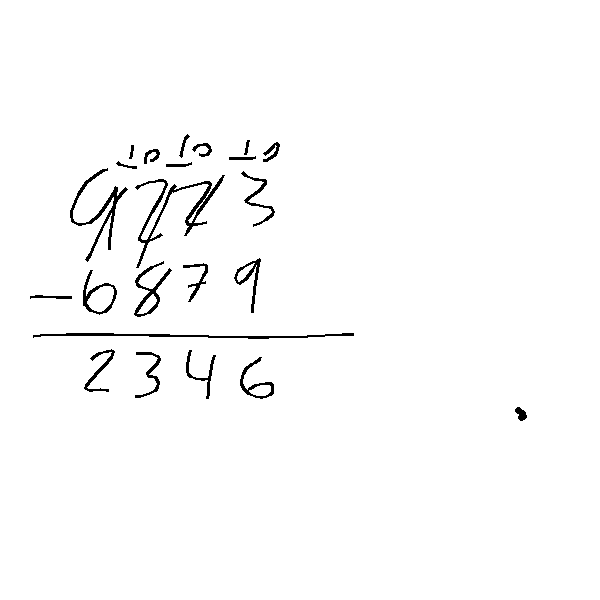 10 10 10
9223
-6879
2346